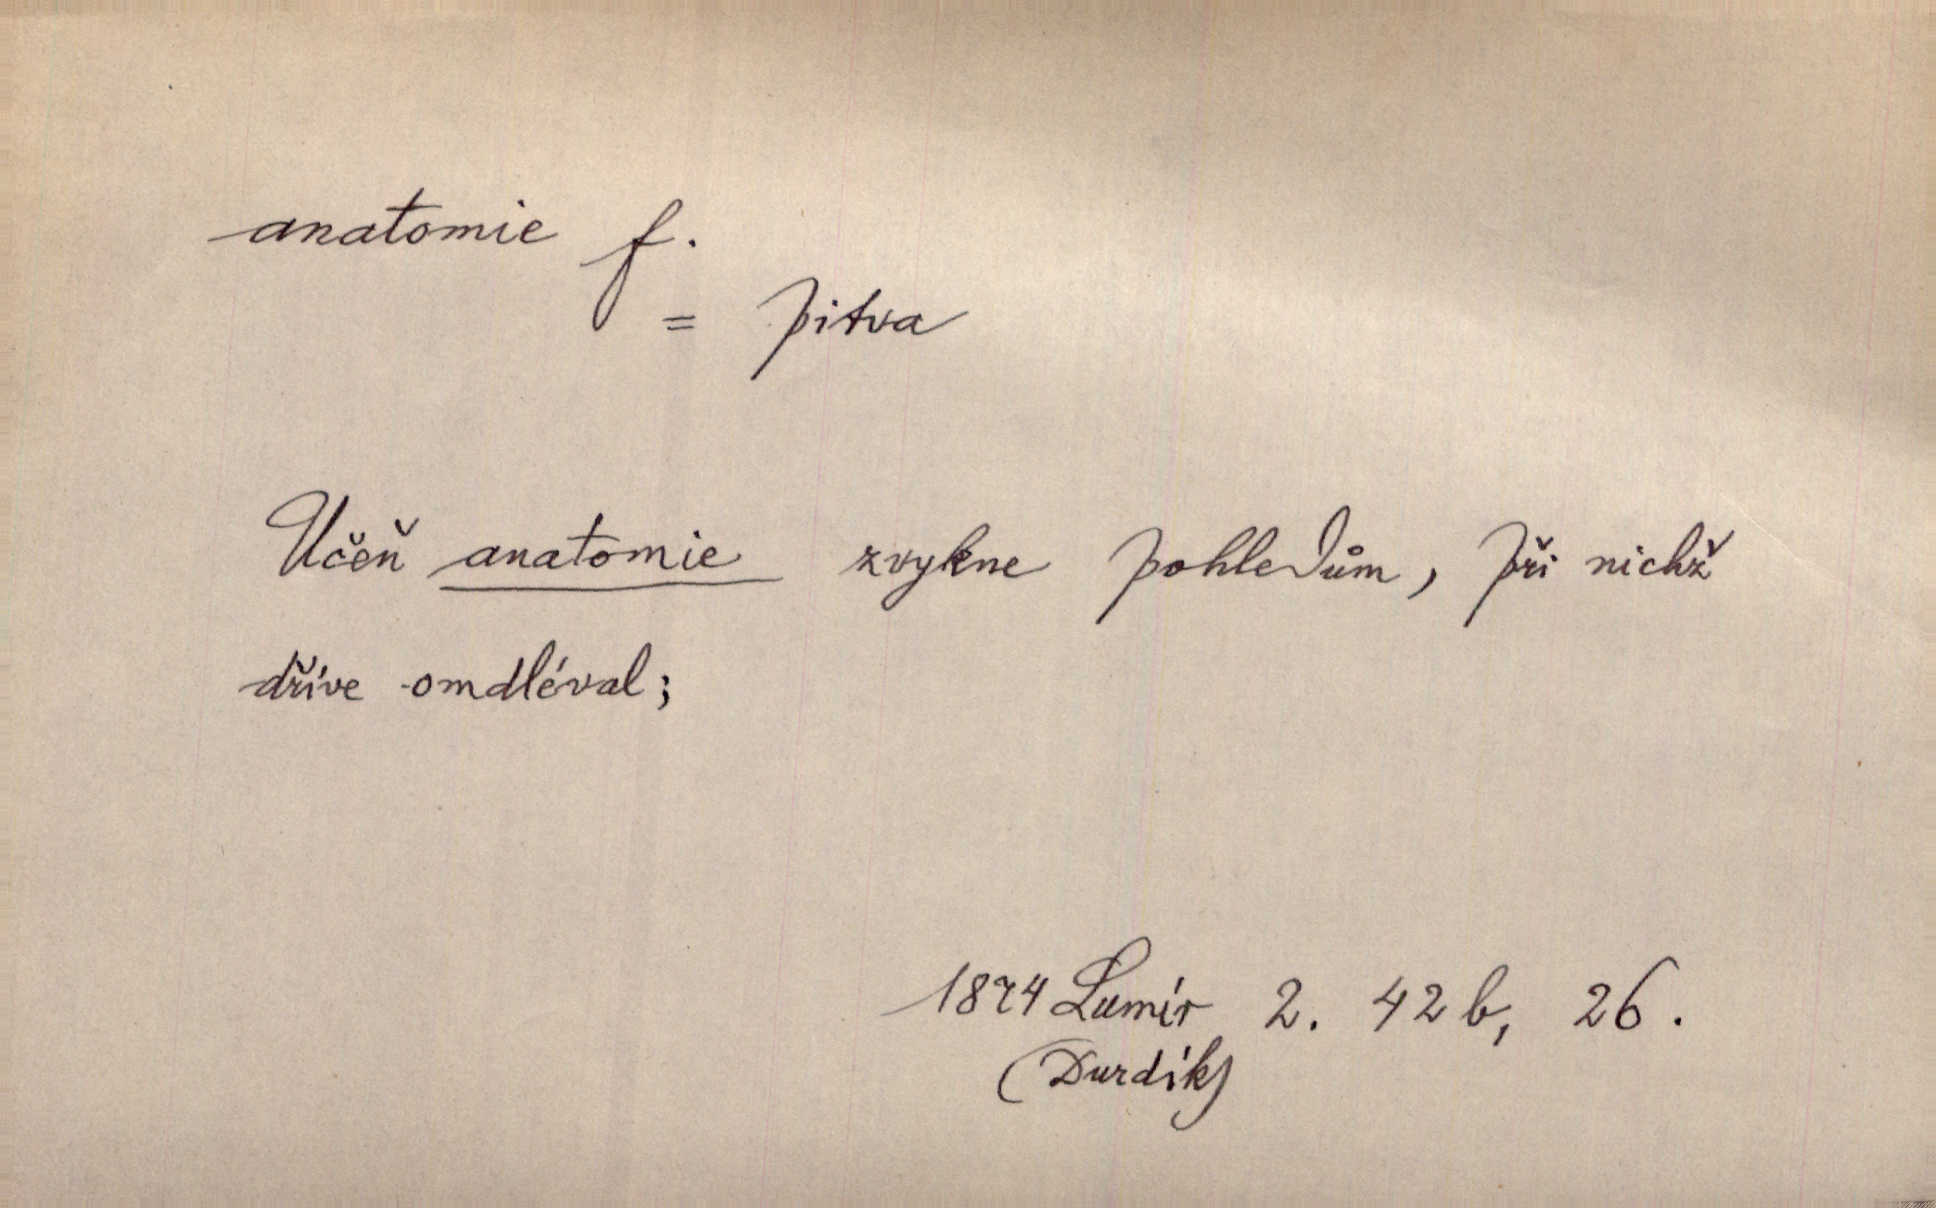 anatomie f.
= pitva
Učeň anatomie zvykne pohledům, při nichž
dříve omdléval;
1874 Lumír 2. 42 b, 26.
(Durdík)